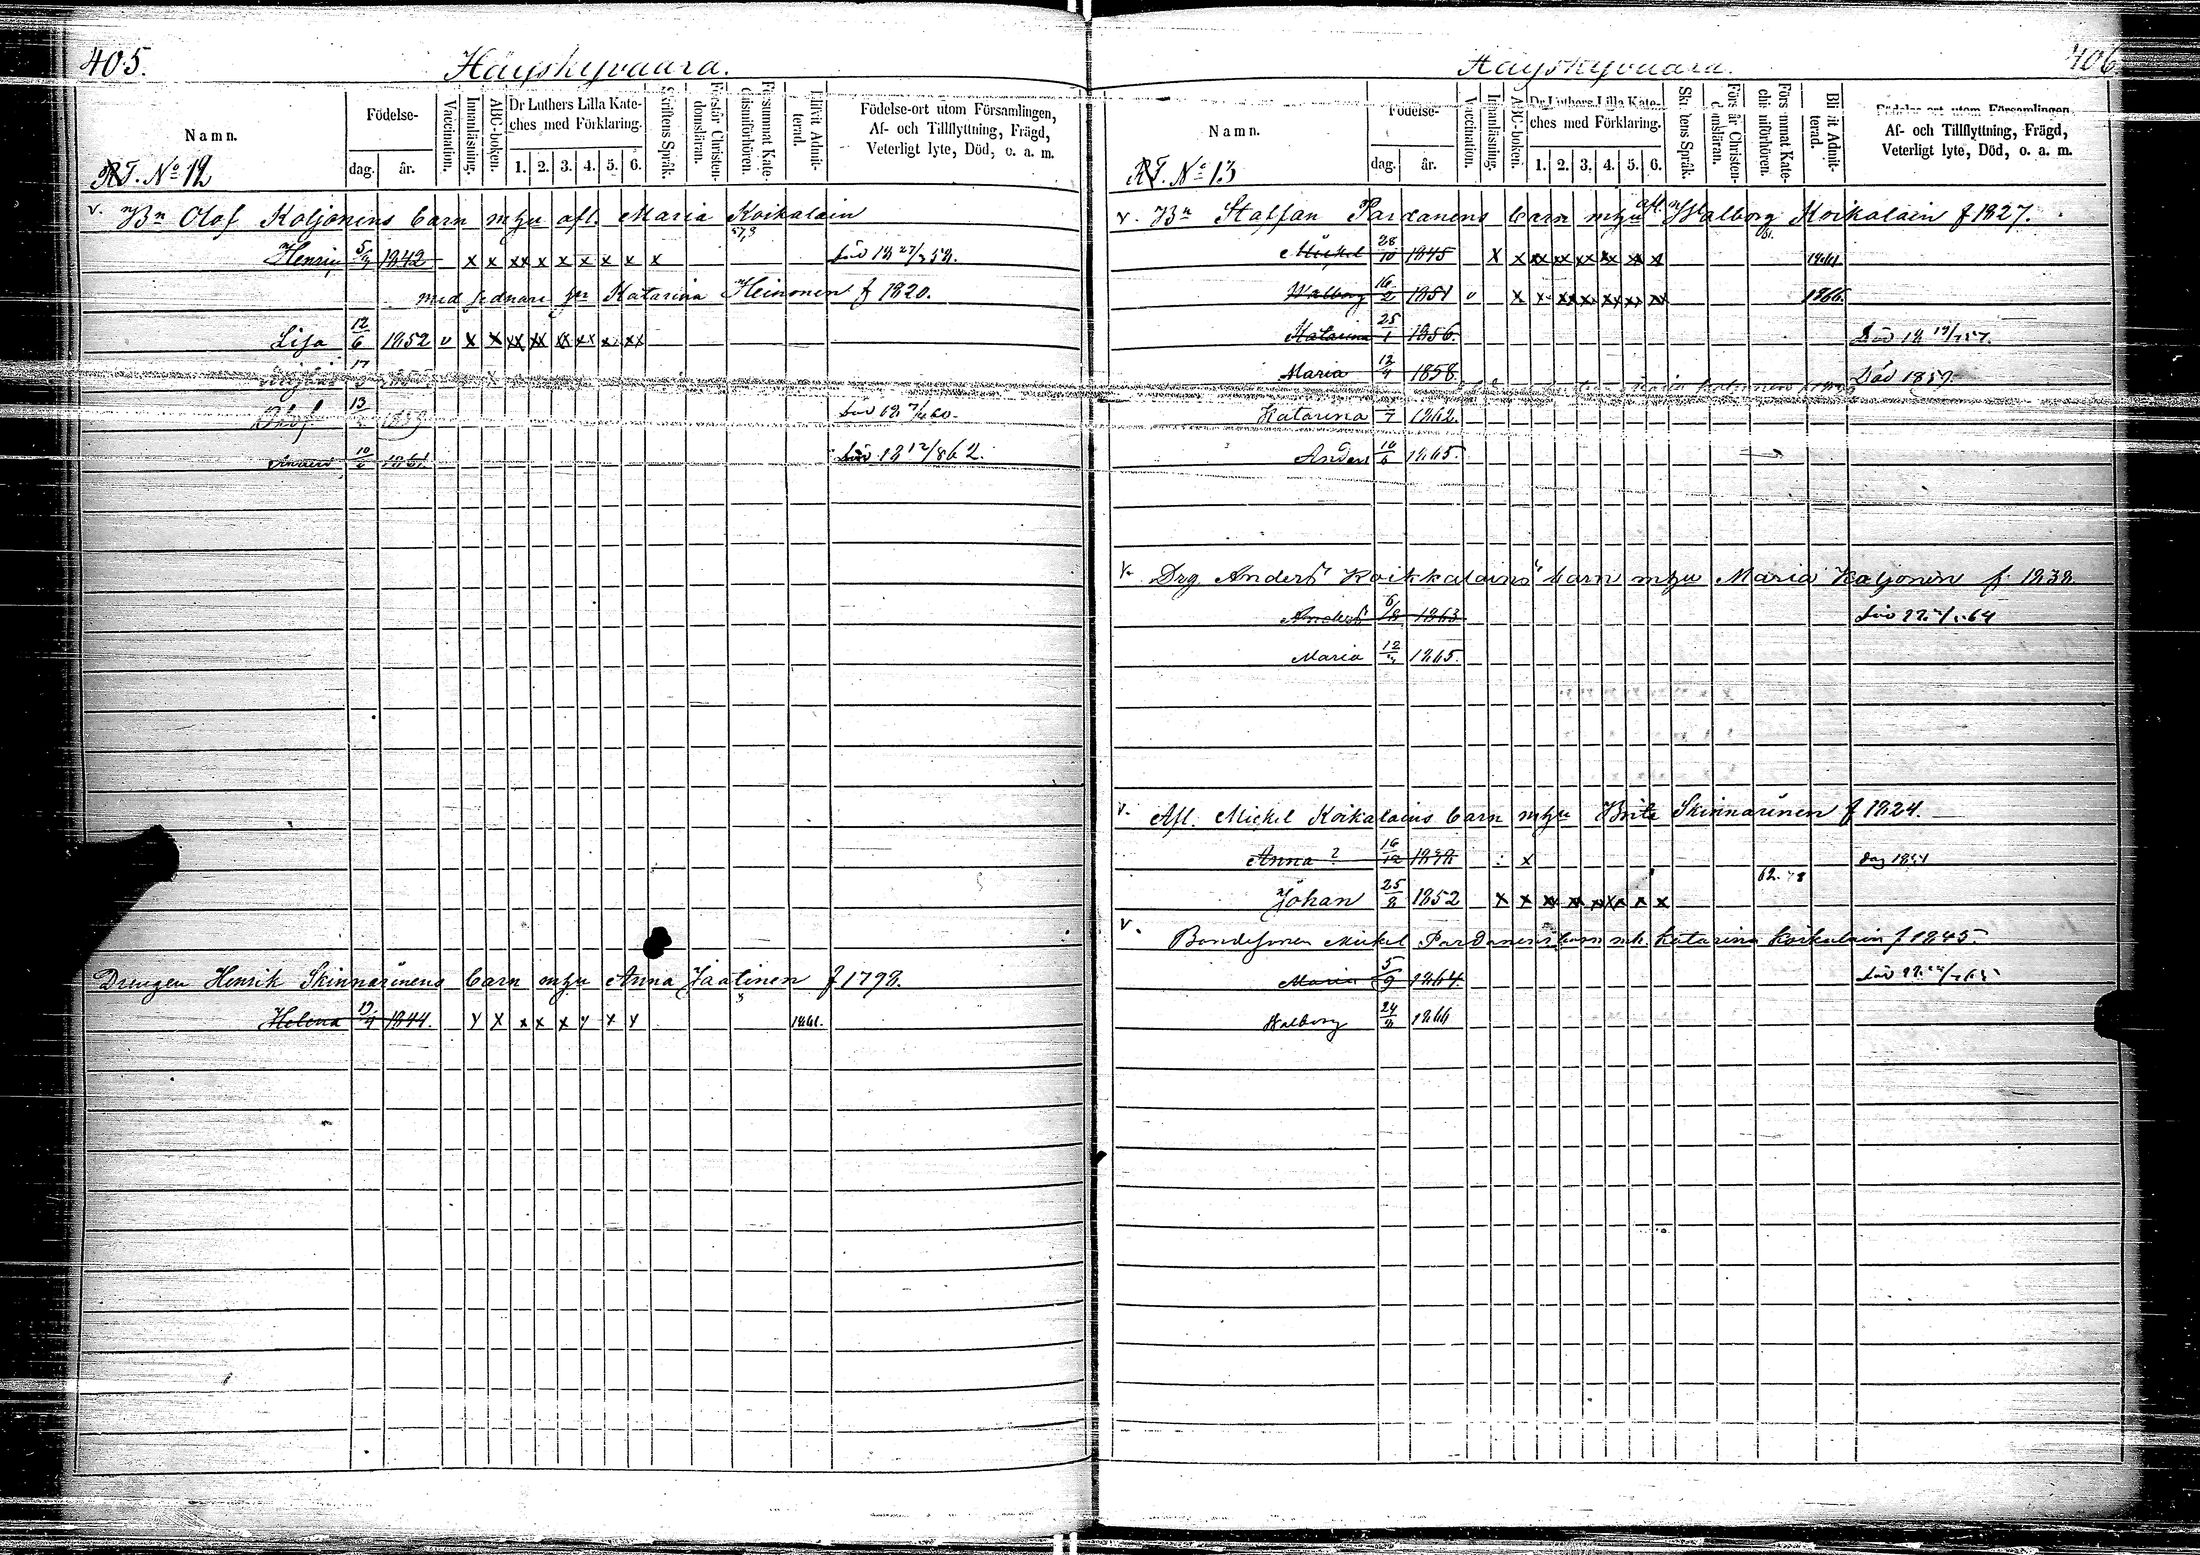 405.
Häyskyvaara.
Namn.
Födelse-
dag. år.
Vaccination.
Innanläsning.
ABC-boken.
Dr Luthers Lilla Kate-
ches med Förklaring.
1. 2. 3. 4. 5. 6.
Skriftens Språk.
Förstår Christen-
domsläran.
Försummat Kate-
chismiförhören.
Blifvit Admit-
terad.
Födelse-ort utom Församlingen,
Af- och Tillflyttning, Frägd,
Veterligt lyte, Död, o. a. m.
RT. No 12
v. Bn Olof Koljonens barn mhu afl. Maria Koikalain
Henrik 5/4 1842 x x xx x x x x x x Död 18 27/3 58.
med sednare hu Katarina Heinonen f 1820.
Lisa 12/6 1852 v x x xx xx xx xx x xx
17
Olof 13 1859 Död
Anders 10/6 1861 Död 18 12/8 62.
Drengen Henrik Skinnarinens barn mhu Anna Jaatinen f 1798.
Helena 19/4 1844. x x x x x x x x 1861.
406
Häyskyvaara.
Namn.
Födelse-
dag. år.
Vaccination.
Innanläsning.
ABC-boken.
Dr Luthers Lilla Kate-
ches med Förklaring.
1. 2. 3. 4. 5. 6.
Skriftens Språk.
Förstår Christen-
domsläran.
Försummat Kate-
chismiförhören.
Blifvit Admit-
terad.
Födelse-ort utom Församlingen,
Af- och Tillflyttning, Frägd,
Veterligt lyte, Död, o. a. m.
RT. No 13
v. Bn Staffan Pardanens barn mhu afl. Walborg Koikalain f 1827.
Mickel 28/10 1845 x x xx xx xx xx xx x 1861
Walborg 16/2 1851 v x x xx xx xx xx xx 1866
Katarina 25/1 1856. Död 18 19/7 57.
Maria 12/4 1858 Död 1859.
Katarina 1862.
Anders 10/6 1865.
v. Drg Anders Koikkalains barn mhu Maria Koljonen f. 1838.
Anders 6/12 1863 Död 64
Maria 12 1865.
v. Afl. Mickel Koikalains barn mhu Brita Skinnarinen f 1824.
Anna ? 16/12 1848 x
Johan 25/8 1852 x x xx xx xx xx x x
v. Bondesonen Mickel Pardanens barn mh. Katarina Koikalain f 1845.
Maria 5/9 1864 Död 65
Walborg 24/8 1866